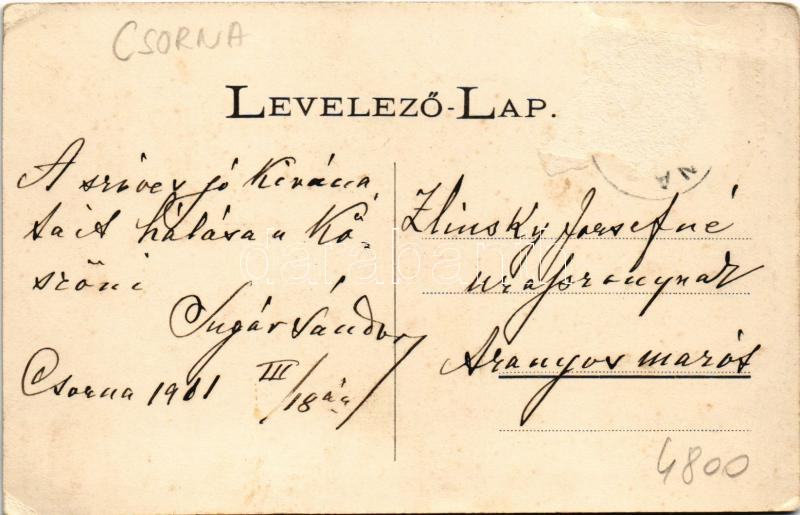 CSORNA
LEVELEZŐ-LAP.
NA
A szives jó kivána
tait hálásan kö-
szöni
Sugár Sándor
Csorna 1901 III/18 án
Zlinsky Jozsefné
urasszonynak
Aranyos marót
4800
darabanth